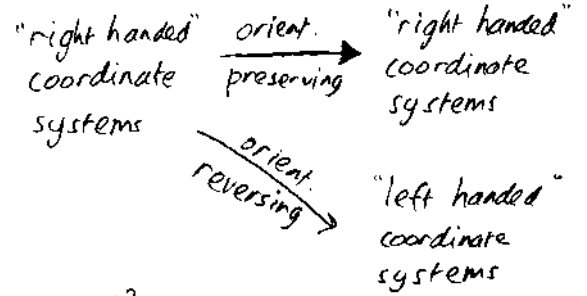 "right handed"
coordinate
systems
orient.
preserving
"right handed"
coordinate
systems
orient.
reversing
"left handed"
coordinate
systems